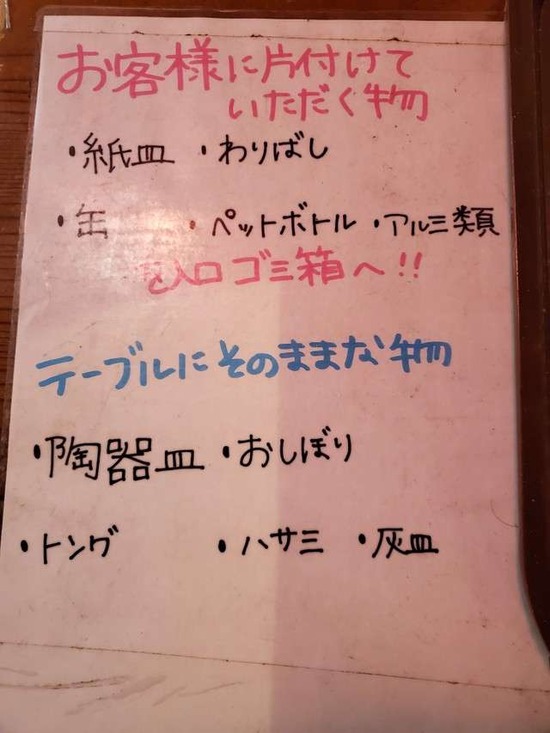 お客様に片付けて
いただく物
・紙皿 ・わりばし
・缶 ・ペットボトル ・アルミ類
入口ゴミ箱へ!!
テーブルにそのままな物
・陶器皿 ・おしぼり
・トング ・ハサミ ・灰皿